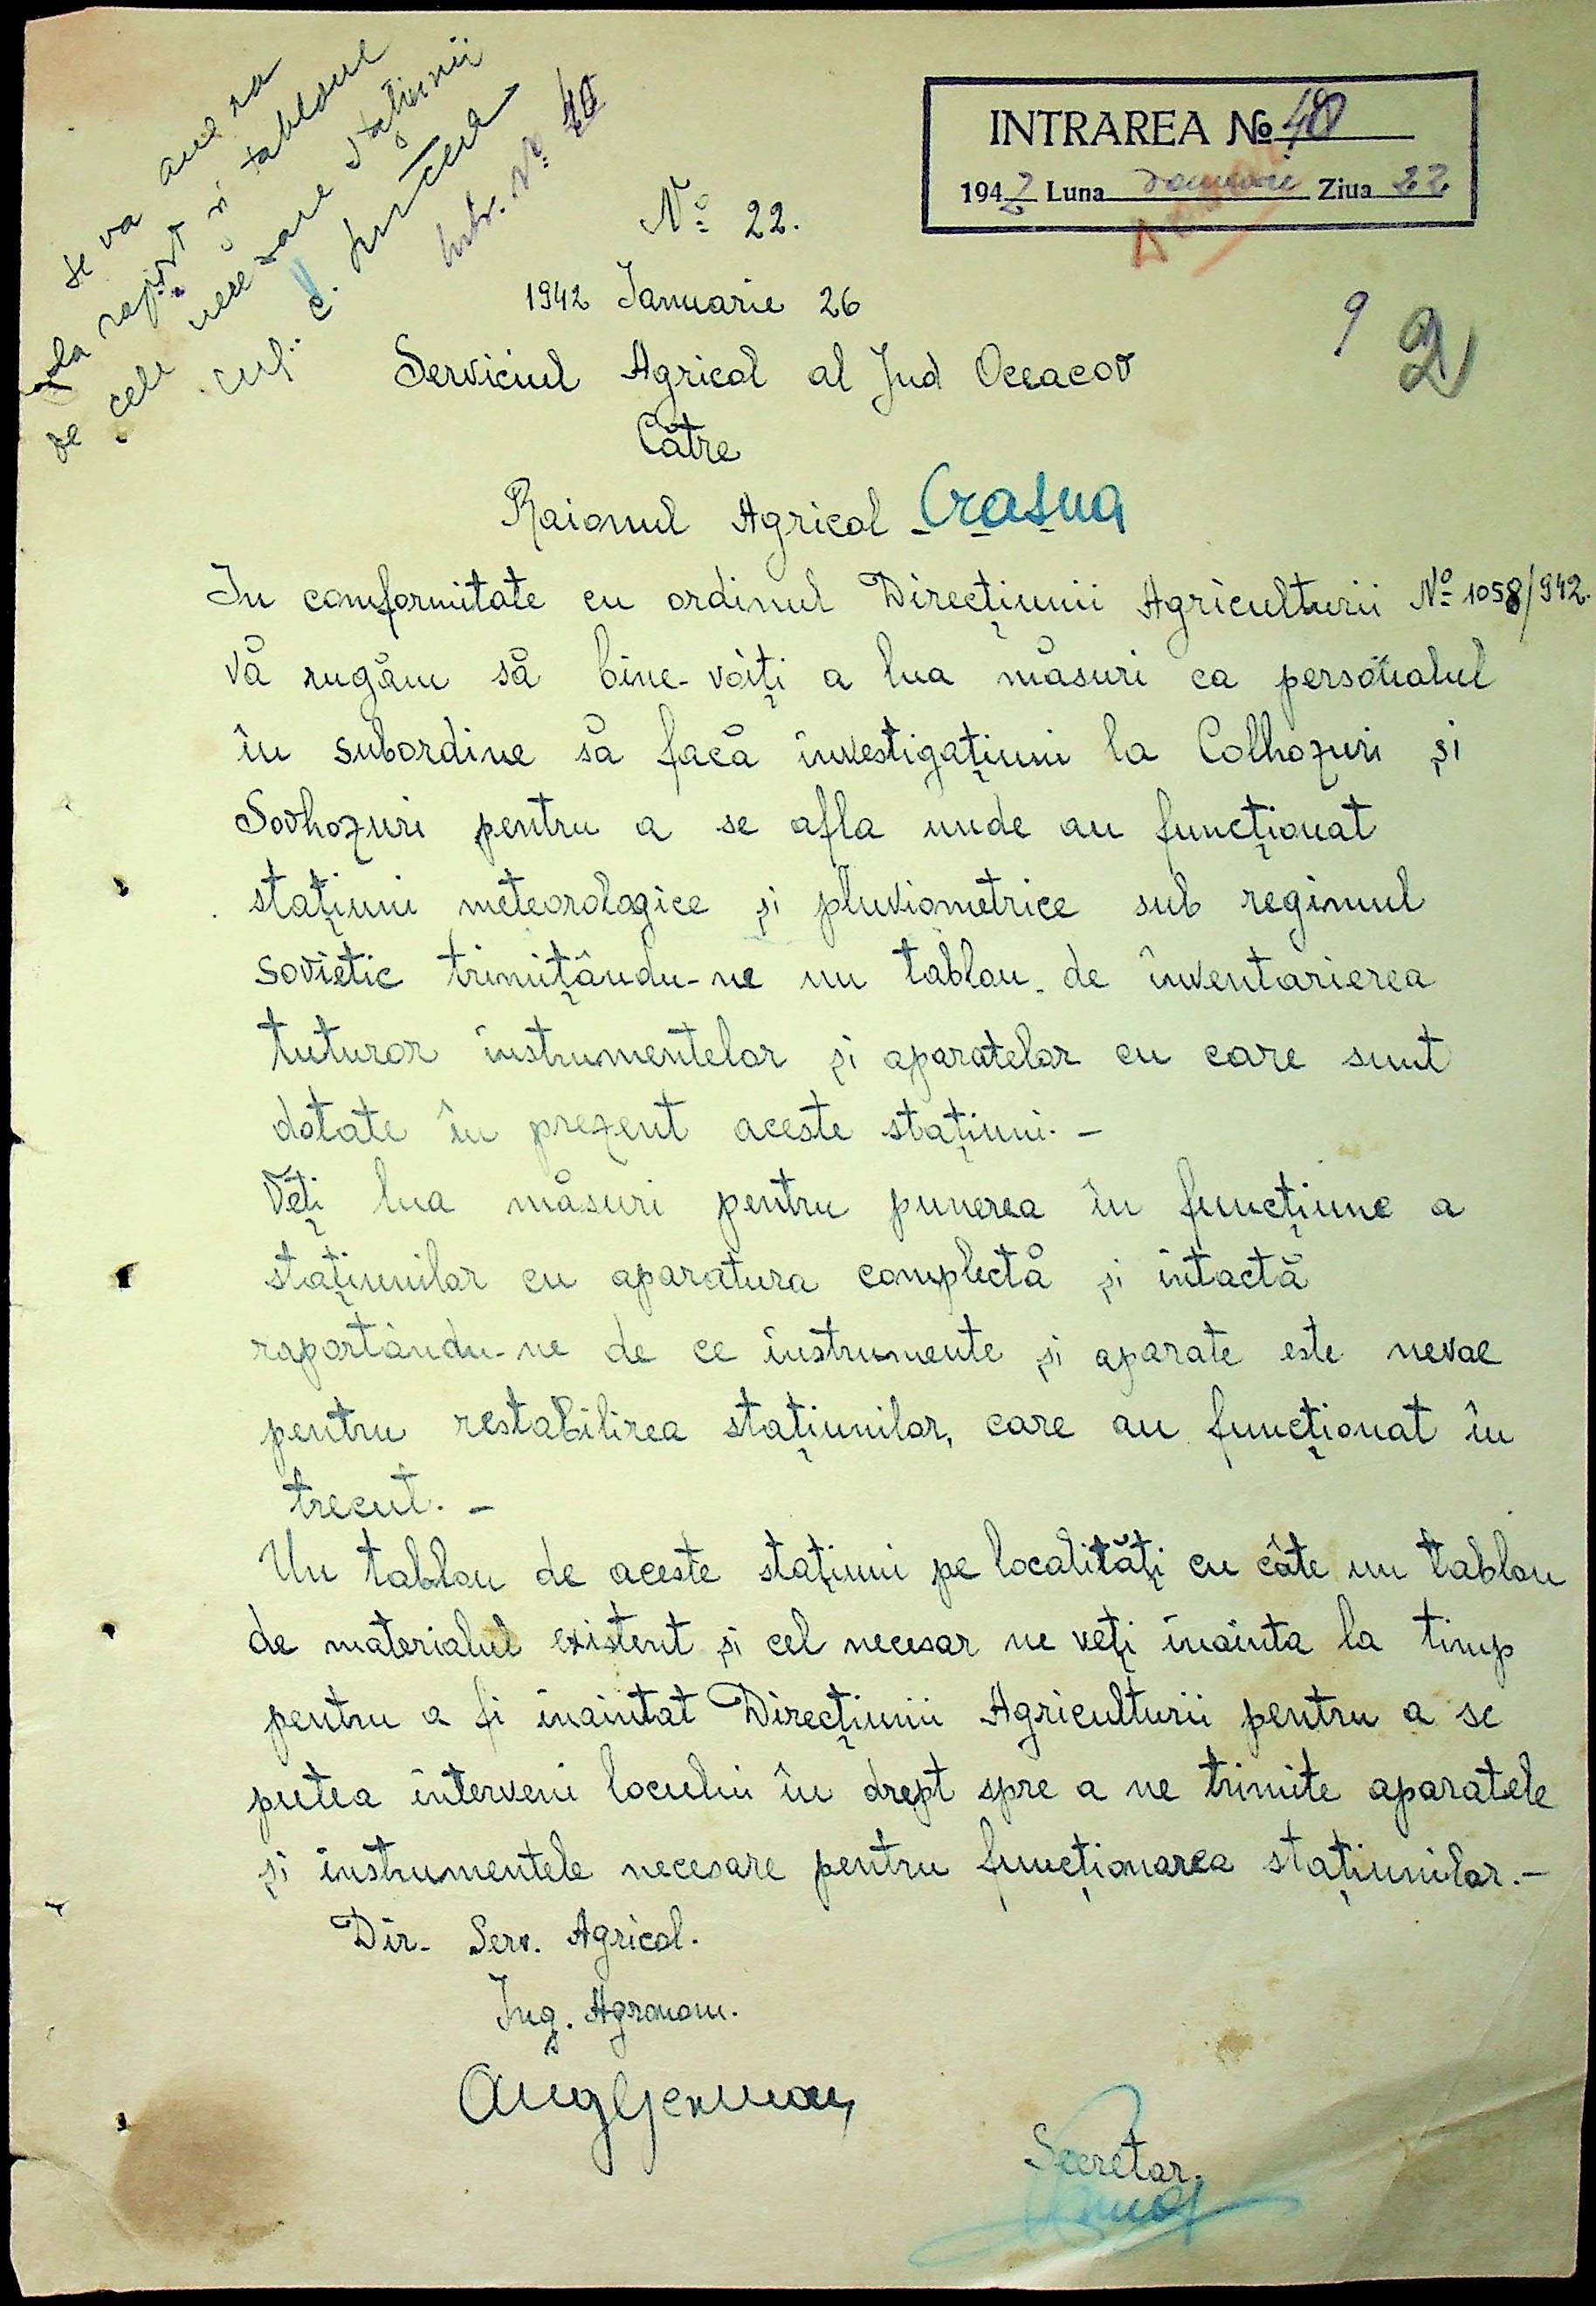 se va anexa
la raport și tabloul
de cele necesare stațiunii
Intr. Nº 40
INTRAREA № 40
1942 Luna Ianuarie Ziua 22
Nº 22.
1942 Ianuarie 26
9 2
Serviciul Agricol al Jud Oceacov
Către
Raionul Agricol Crasna
In comformitate cu ordinul Direcțiunii Agriculturii Nº 1058/942.
Vă rugăm să bine-voiți a lua măsuri ca personalul
în subordine să facă investigațiuni la Colhozuri și
Sovhozuri pentru a se afla unde au funcționat
stațiuni meteorologice și pluviometrice sub regimul
sovietic trimițându-ne un tablou de inventarierea
tuturor instrumentelor și aparatelor cu care sunt
dotate în prezent aceste stațiuni.-
Veți lua măsuri pentru punerea în funcțiune a
stațiunilor cu aparatura complectă și intactă
raportându-ne de ce instrumente și aparate este nevoe
pentru restabilirea stațiunilor, care au funcționat în
trecut.-
Un tablou de aceste stațiuni pe localități cu câte un tablou
de materialul existent și cel necesar ne veți inainta la timp
pentru a fi inaintat Direcțiunii Agriculturii pentru a se
putea interveni locului în drept spre a ne trimite aparatele
și instrumentele necesare pentru funcționarea stațiunilor.-
Dir. Serv. Agricol.
Ing. Agronom.
Secretar.